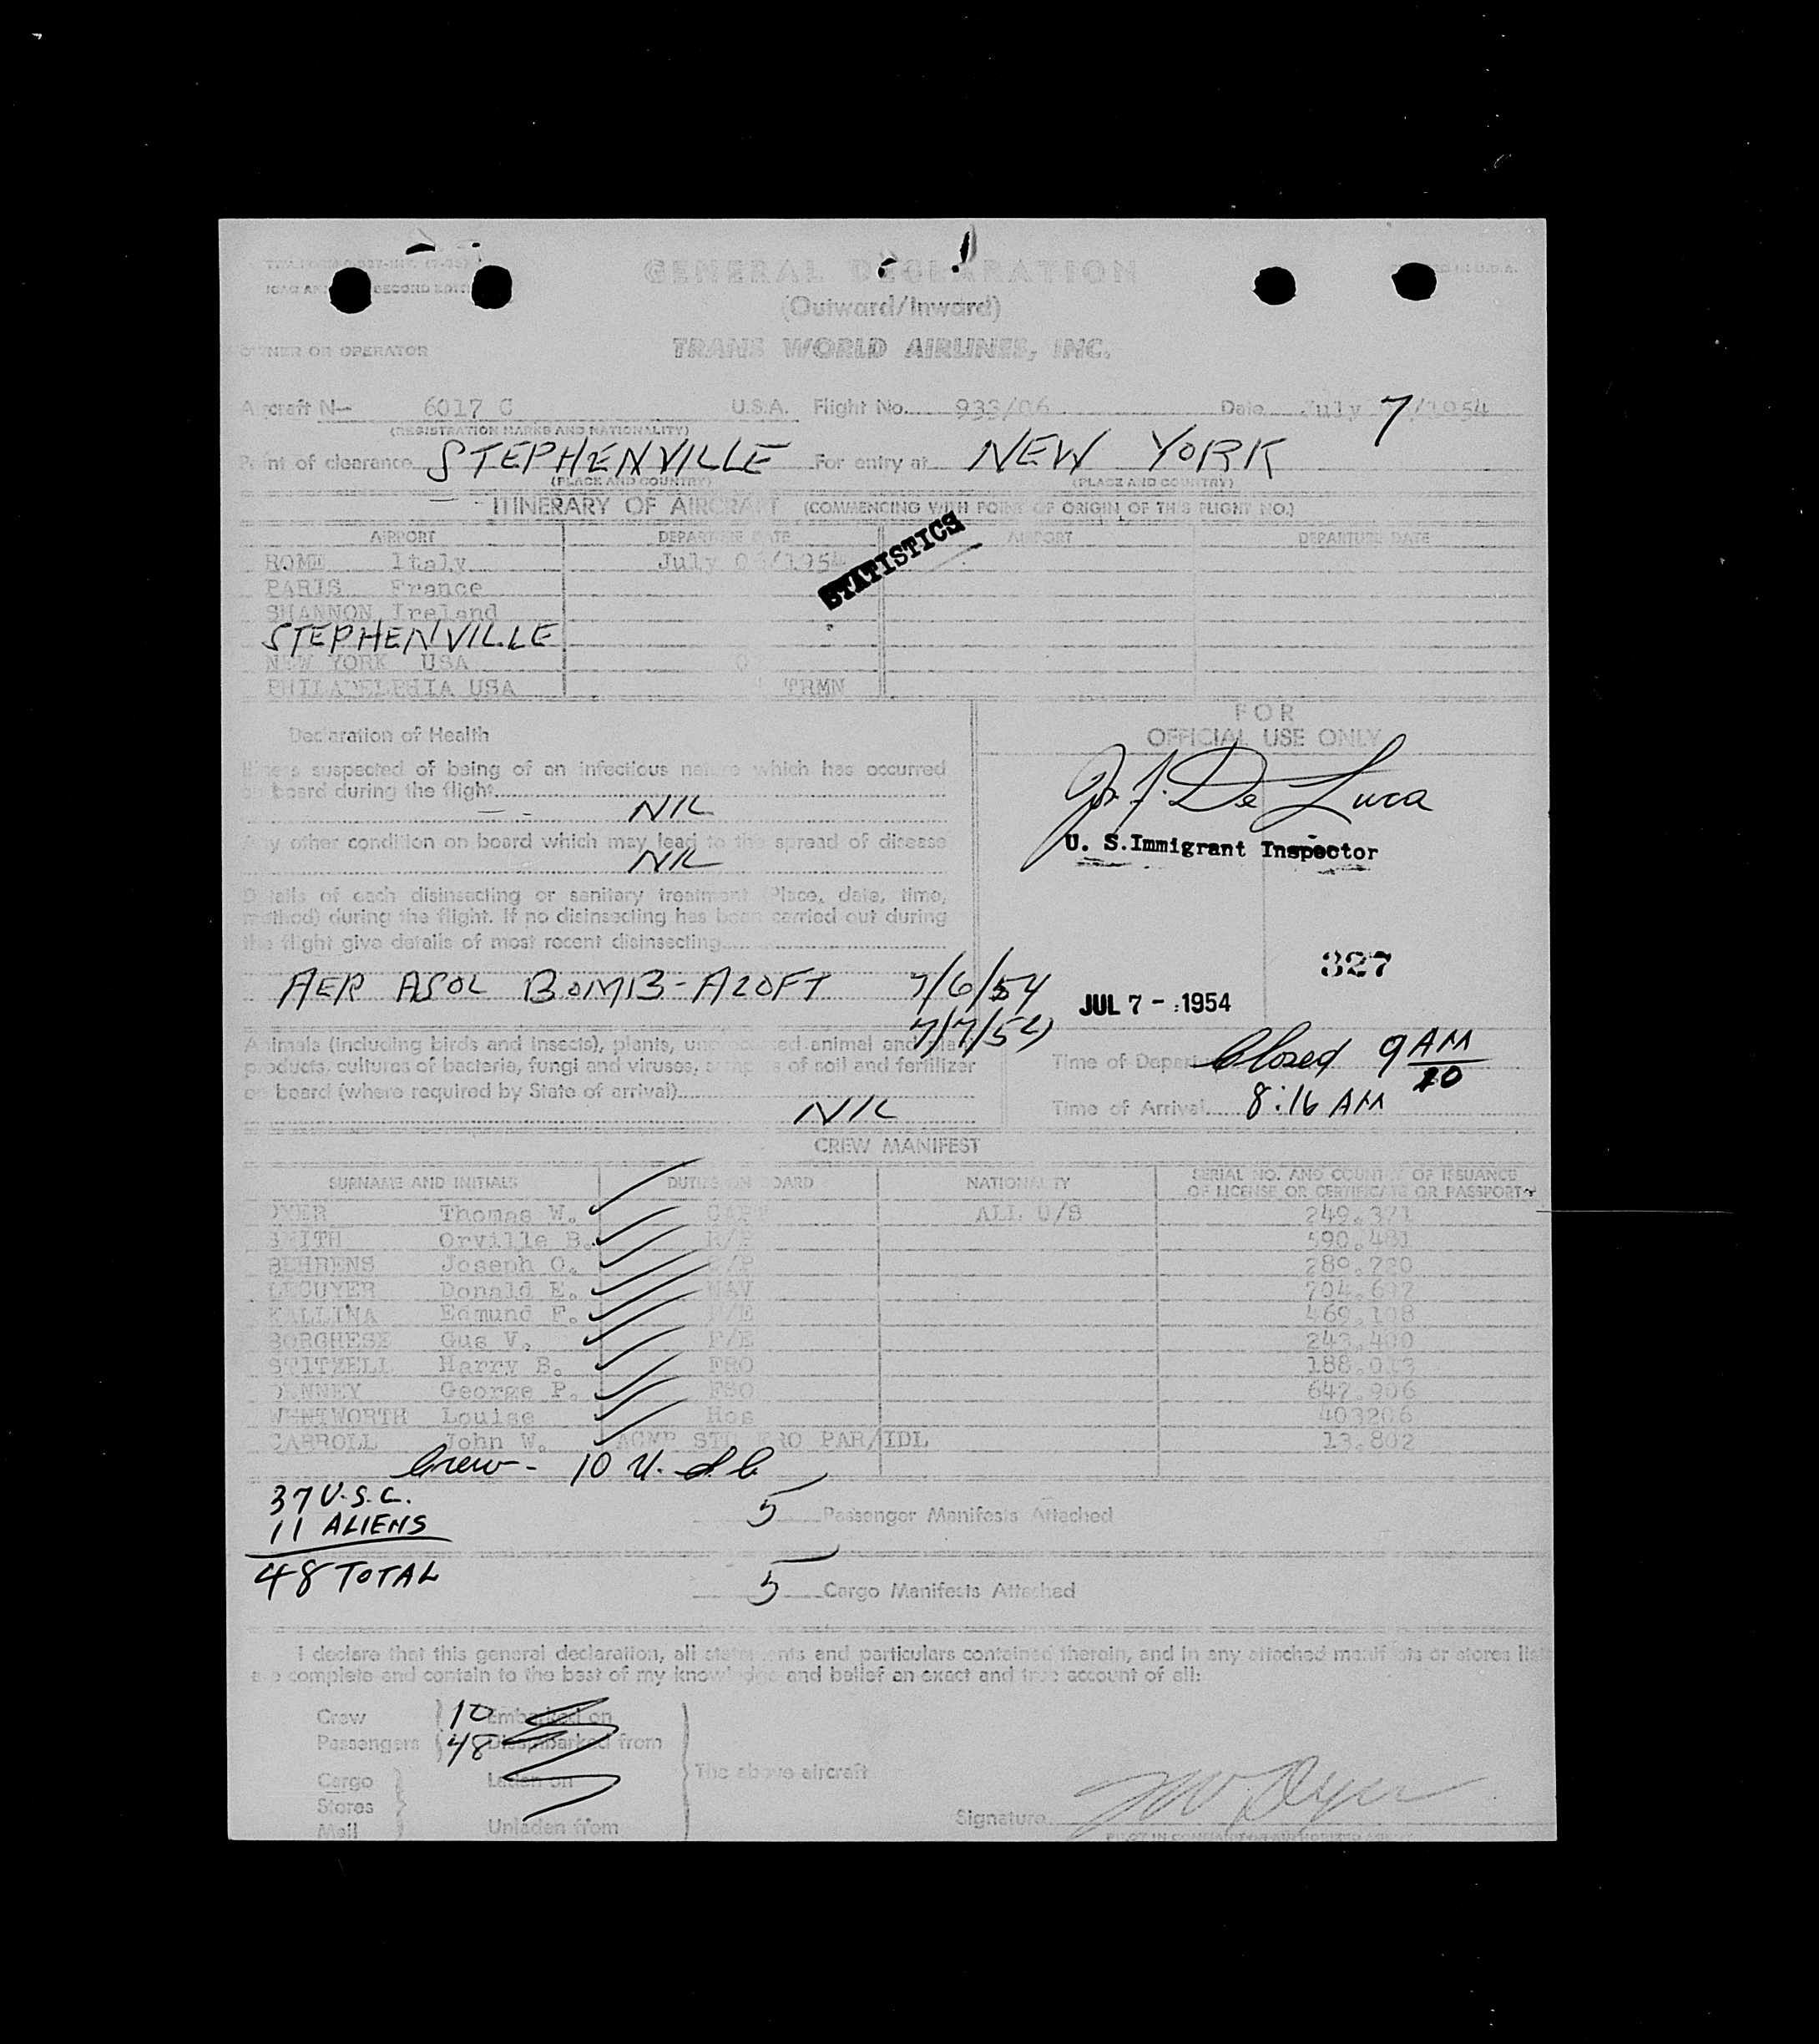 GENERAL DECLARATION
(Outward/Inward)
OWNER OR OPERATOR TRANS WORLD AIRLINES, INC.
Aircraft N- 6017 C U.S.A. Flight No. 933/06 Date July 7/1954
(REGISTRATION MARKS AND NATIONALITY)
Point of clearance STEPHENVILLE For entry at NEW YORK
(PLACE AND COUNTRY) (PLACE AND COUNTRY)
ITINERARY OF AIRCRAFT (COMMENCING WITH POINT OF ORIGIN OF THIS FLIGHT NO.)
AIRPORT DEPARTURE DATE AIRPORT DEPARTURE DATE
STATISTICS
ROME Italy July 06/1954
PARIS France
SHANNON Ireland
STEPHENVILLE
NEW YORK USA
PHILADELPHIA USA TRMN
FOR
OFFICIAL USE ONLY
Declaration of Health
Illness suspected of being of an infectious nature which has occurred
on board during the flight
NIL
Any other condition on board which may lead to the spread of disease
NIL
De Luca
U. S. Immigrant Inspector
Details of each disinsecting or sanitary treatment (Place, date, time,
method) during the flight. If no disinsecting has been carried out during
the flight give details of most recent disinsecting
327
AER ASOL BOMB-ALOFT 7/6/54
7/7/54
JUL 7 - 1954
Animals (including birds and insects), plants, unprocessed animal and plant
products, cultures of bacteria, fungi and viruses, samples of soil and fertilizer
on board (where required by State of arrival)
NIL
Time of Departure Closed 9 AM
20
Time of Arrival 8:16 AM
CREW MANIFEST
SURNAME AND INITIALS DUTIES ON BOARD NATIONALITY SERIAL NO. AND COUNTRY OF ISSUANCE
OF LICENSE OR CERTIFICATE OR PASSPORT
DYER Thomas W. CAPT ALL U/S 249.371
SMITH Orville B. 590.481
BEHRENS Joseph O. 280.720
LECUYER Donald E. NAV 704.697
KALLINA Edmund F. F/E 469.108
BORGHESE Gus V. F/E 243.400
STITZELL Harry B. FRO 188.013
DENNEY George P. FSO 647.906
WENTWORTH Louise Hos 403206
CARROLL John W. PAR/IDL 13.802
Crew - 10 U.S.C.
37 U.S.C.
11 ALIENS
48 TOTAL
5 Passenger Manifests Attached
5 Cargo Manifests Attached
I declare that this general declaration, all statements and particulars contained therein, and in any attached manifests or stores list
are complete and contain to the best of my knowledge and belief an exact and true account of all:
Crew 10 Embarked on
Passengers 48 Disembarked from
Cargo Laden on The above aircraft
Stores
Mail Unladen from
Signature TW Dyer